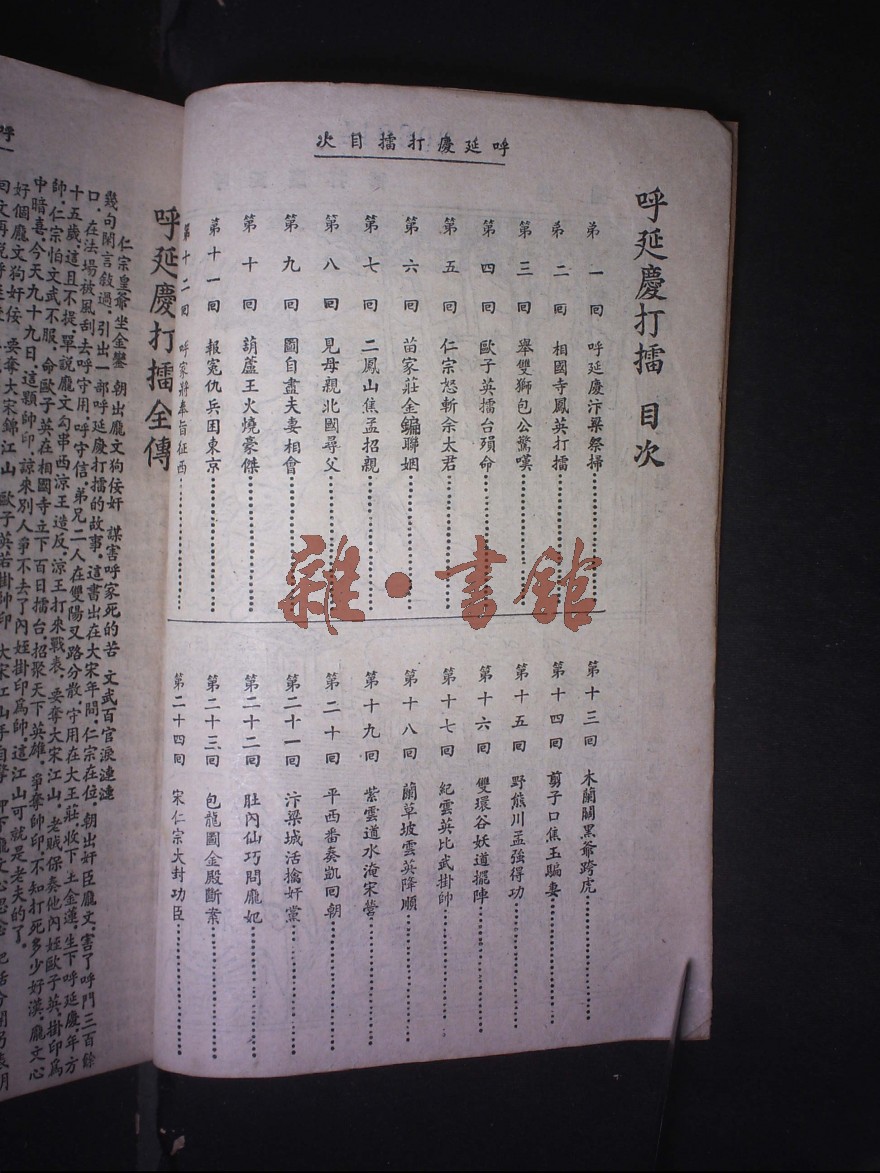 呼延慶打擂目次
呼延慶打擂 目次
第一回 呼延慶汴梁祭掃
第二回 相國寺鳳英打擂
第三回 舉雙獅包公驚嘆
第四回 歐子英擂台殞命
第五回 仁宗怒斬佘太君
第六回 苗家莊金鞭聯姻
第七回 二鳳山焦孟招親
第八回 見母親北國尋父
第九回 圖自盡夫妻相會
第十回 葫蘆王火燒豪傑
第十一回 報寃仇兵困東京
第十二回 呼家將奉旨征西
第十三回 木蘭關黑爺跨虎
第十四回 剪子口焦玉騙妻
第十五回 野熊川孟強得功
第十六回 雙環谷妖道擺陣
第十七回 紀雲英比武掛帥
第十八回 蘭草坡雲英降順
第十九回 紫雲道水淹宋營
第二十回 平西番奏凱回朝
第二十一回 汴梁城活擒奸黨
第二十二回 肚內仙巧問龐妃
第二十三回 包龍圖金殿斷案
第二十四回 宋仁宗大封功臣
雜·書館
呼
呼延慶打擂全傳
仁宗皇爺坐金鑾 朝出龐文狗佞奸 謀害呼家死的苦 文武百官淚漣漣
幾句閑言敍過，引出一部呼延慶打擂的故事。這書出在大宋年間，仁宗在位，朝出奸臣龐文害了呼門三百餘
口，在法場被風刮去呼守用，呼守信，弟兄二人在雙陽叉路分散，守用在大王莊，收下土金蓮，生下呼延慶年方
十五歲，這且不提，單說龐文勾串西涼王造反，涼王打來戰表，要奪大宋江山，老賊保奏他內姪歐子英，掛印爲
帥，仁宗怕文武不服，命歐子英在相國寺立下百日擂台，招聚天下英雄，爭奪帥印，不知打死多少好漢，龐文心
中暗喜，今天九十九日，這顆帥印，諒來別人爭不去了，內姪掛印爲帥，這江山可就是老夫的了。
好個龐文狗奸佞 要奪大宋錦江山 歐子英若掛帥印 大宋江山